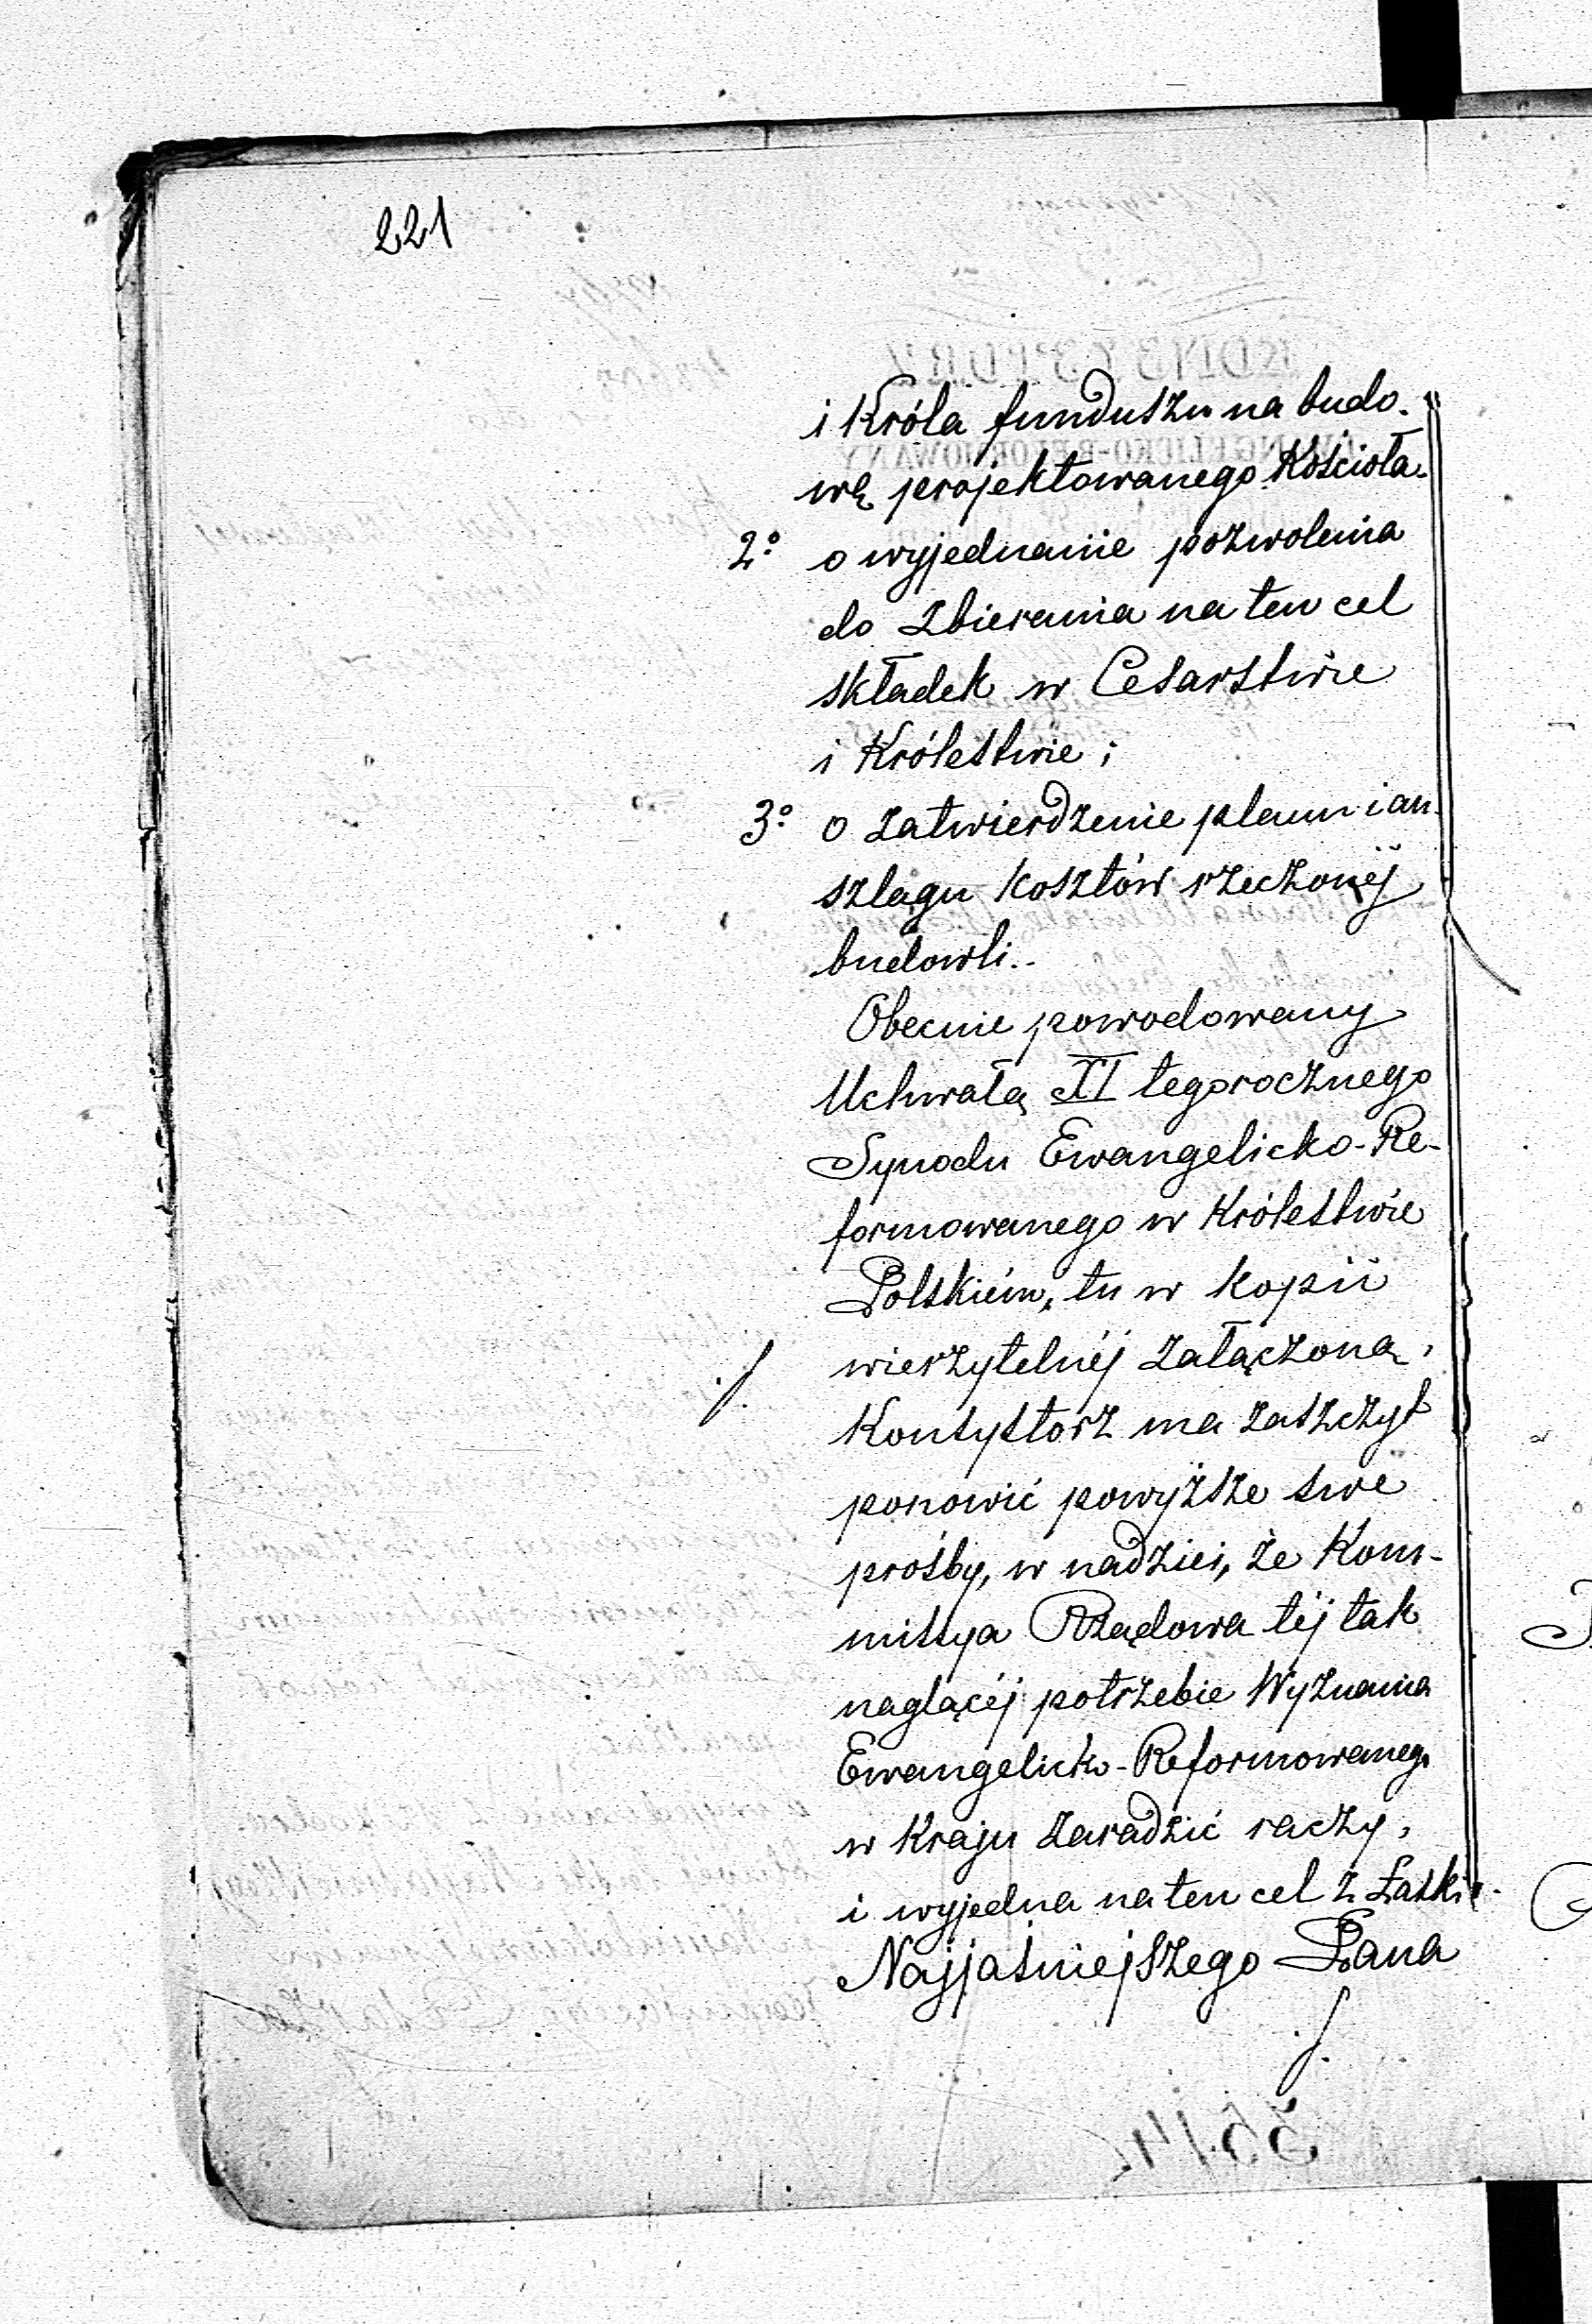 221
i Króla funduszu na budo-
wę projektowanego Kościoła.
2° o wyjednanie pozwolenia
do zbierania na ten cel
składek w Cesarstwie
i Królestwie;
3° o zatwierdzenie planu i an-
szlagu kosztów rzeczonéj
budowli..
Obecnie powodowany
Uchwałą XI tegorocznego
Synodu Ewangelicko-Re-
formowanego w Królestwie
Polskiém, tu w kopii
wierzytelnéj załączoną,
Konsystorz ma zaszczyt
ponowić powyższe swe
prośby, w nadziei, że Kom-
missya Rządowa téj tak
naglącéj potrzebie Wyznania
Ewangelicko-Reformowanego
w Kraju zaradzić raczy,
i wyjedna na ten cel z Łaski
Najjaśniejszego Pana